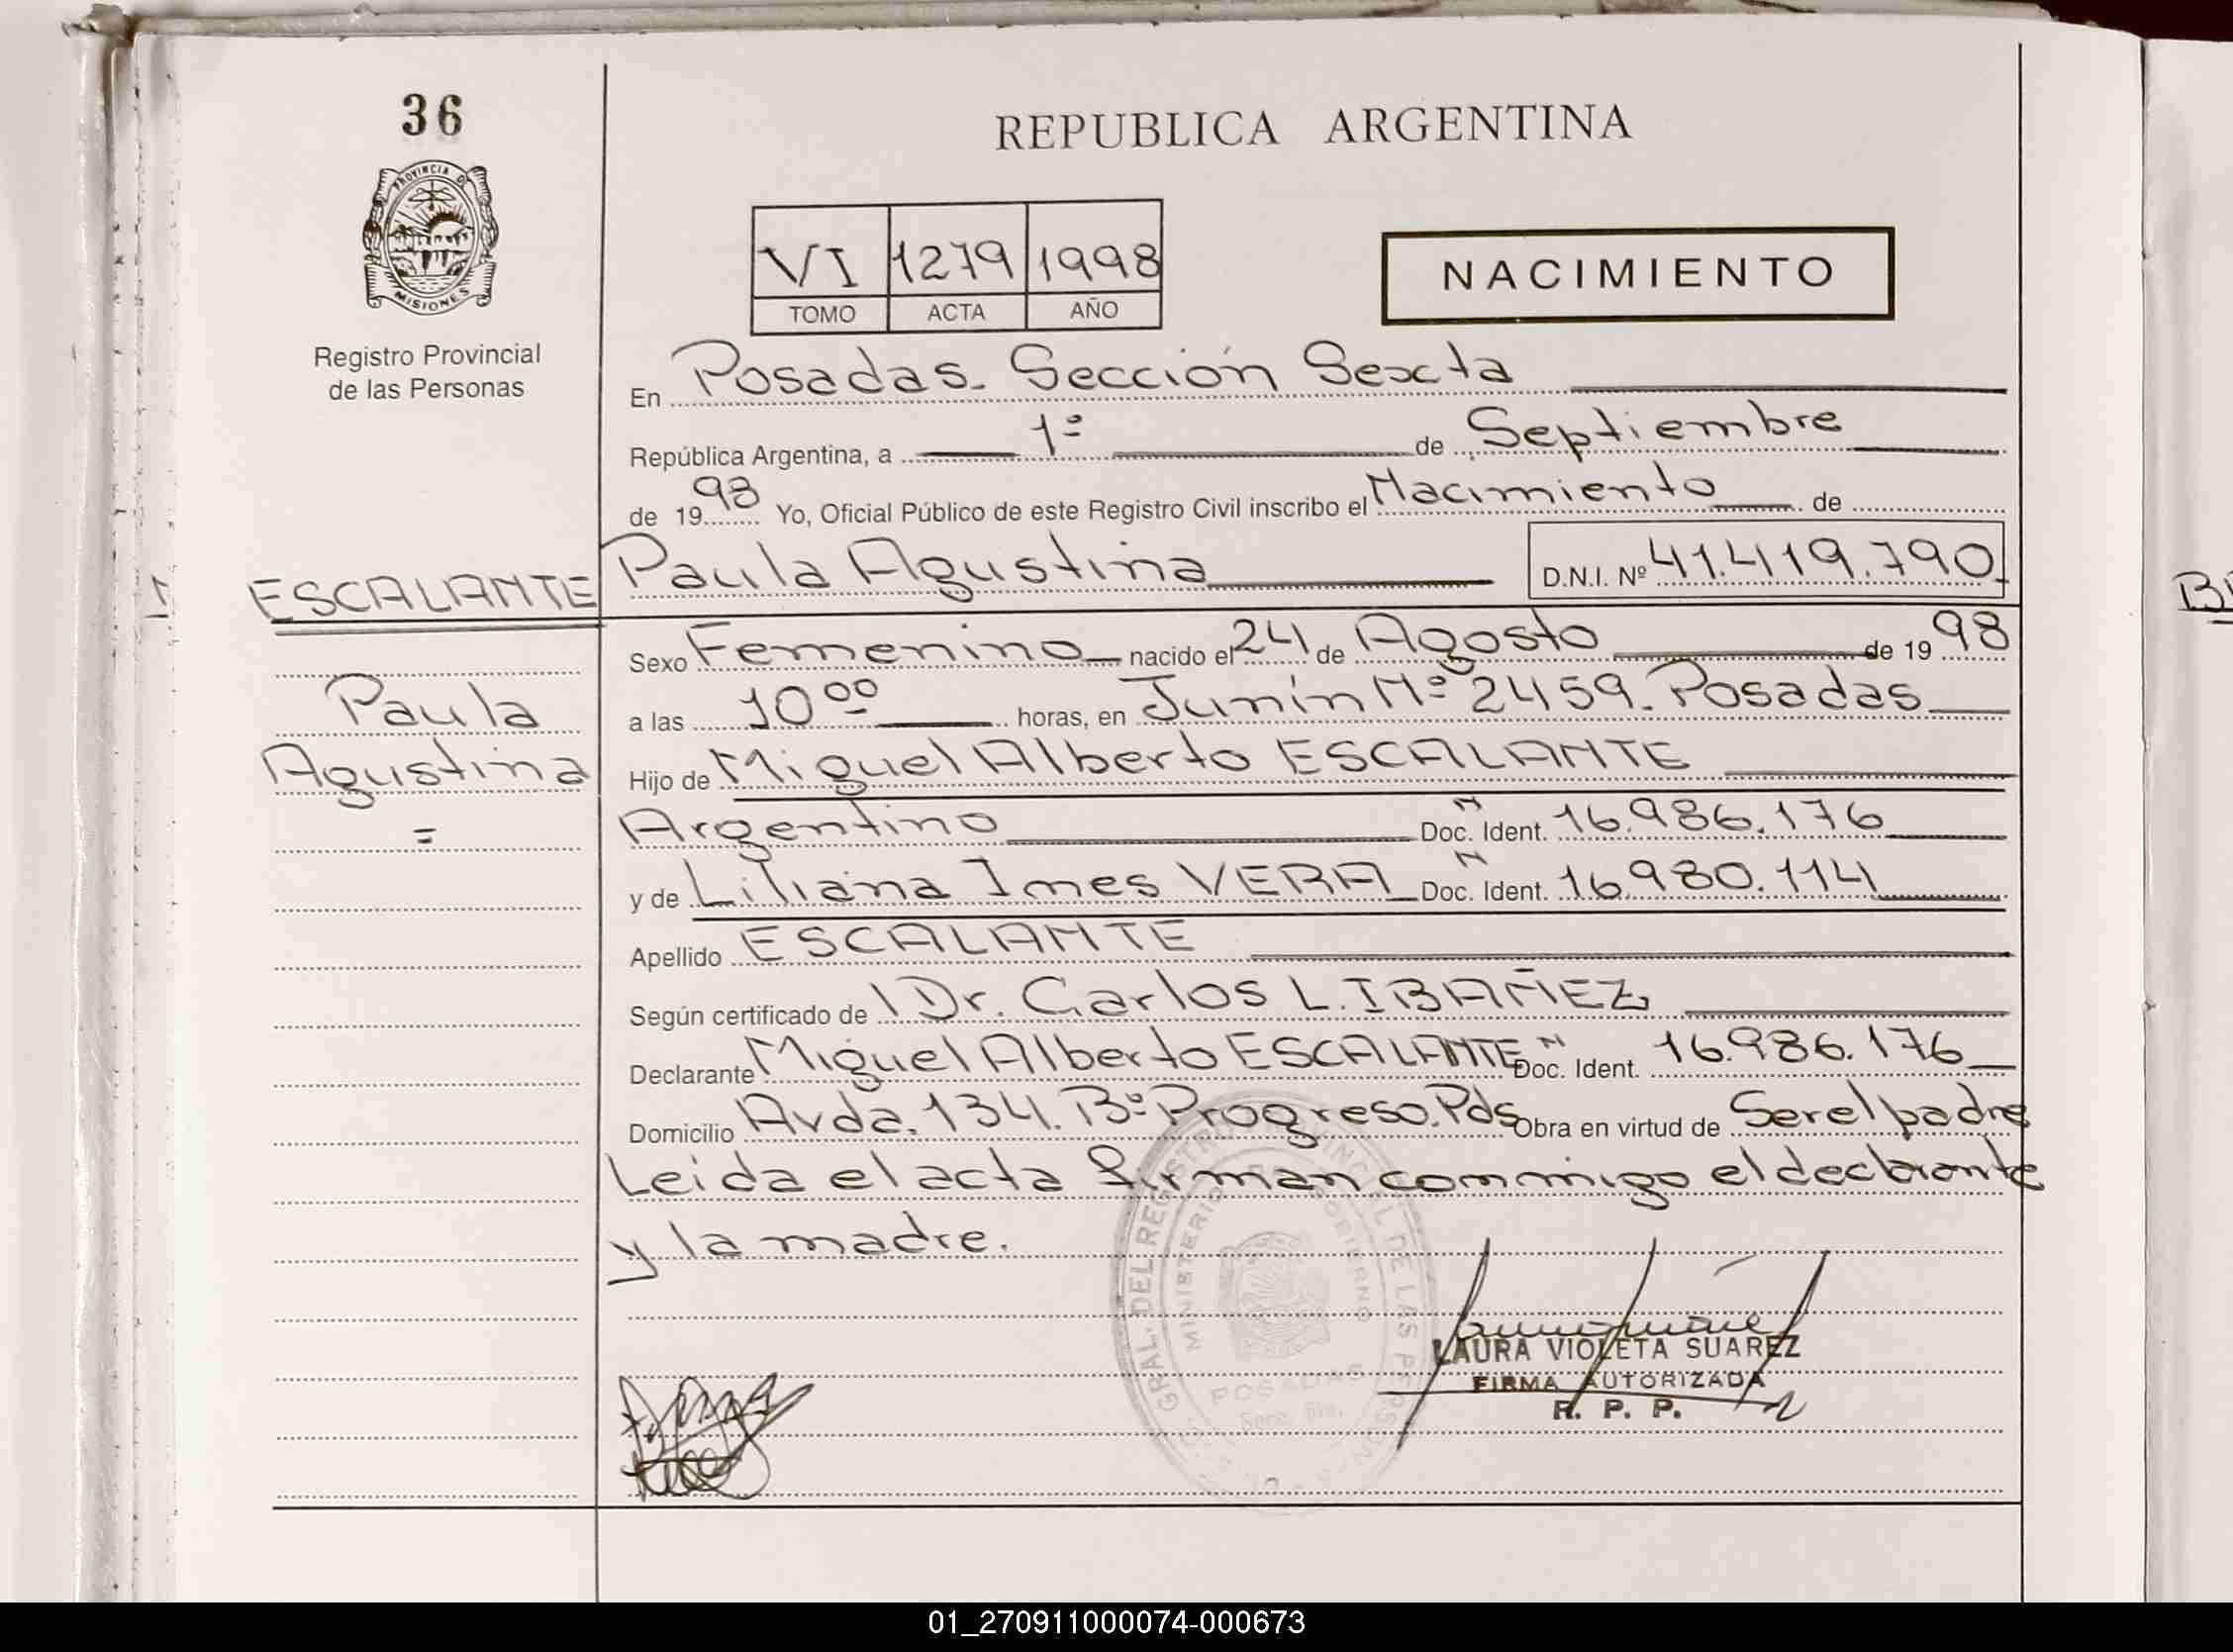 36
REPUBLICA ARGENTINA
PROVINCIA DE
MISIONES
Registro Provincial
de las Personas
VI 1279 1998
TOMO ACTA AÑO
NACIMIENTO
En Posadas. Sección Sexta
República Argentina, a 1º de Septiembre
de 1998 Yo, Oficial Público de este Registro Civil inscribo el Nacimiento de
ESCALANTE Paula Agustina D.N.I. Nº 41.419.790
Sexo Femenino nacido el 24 de Agosto de 1998
Paula a las 10 00 horas, en Junín Nº 2459. Posadas
Agustina Hijo de Miguel Alberto ESCALANTE
= Argentino Doc. Ident. N 16.986.176
y de Liliana Ines VERA Doc. Ident. N 16.980.114
Apellido ESCALANTE
Según certificado de Dr. Carlos L. IBAÑEZ
Declarante Miguel Alberto ESCALANTE Doc. Ident. N 16.986.176
Domicilio Avda. 134. Bº Progreso. Pds Obra en virtud de Ser el padre
Leida el acta firman conmigo el declarante
y la madre.
GRAL. DEL REGISTRO PROVINCIAL DE LAS PERSONAS
MINISTERIO DE GOBIERNO
POSADAS
LAURA VIOLETA SUAREZ
FIRMA AUTORIZADA
R. P. P.
01_270911000074-000673